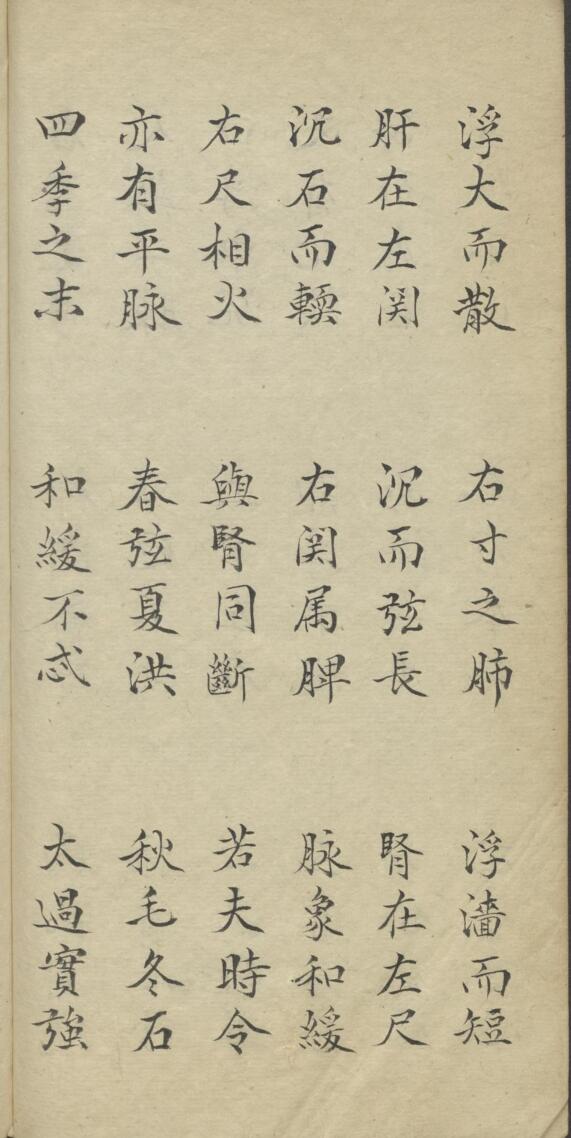 浮大而散 右寸之肺 浮濇而短
肝在左関 沉而弦長 腎在左尺
沉石而輭 右関属脾 脉象和緩
右尺相火 與腎同斷 若夫時令
亦有平脉 春弦夏洪 秋毛冬石
四季之末 和緩不忒 太過實強